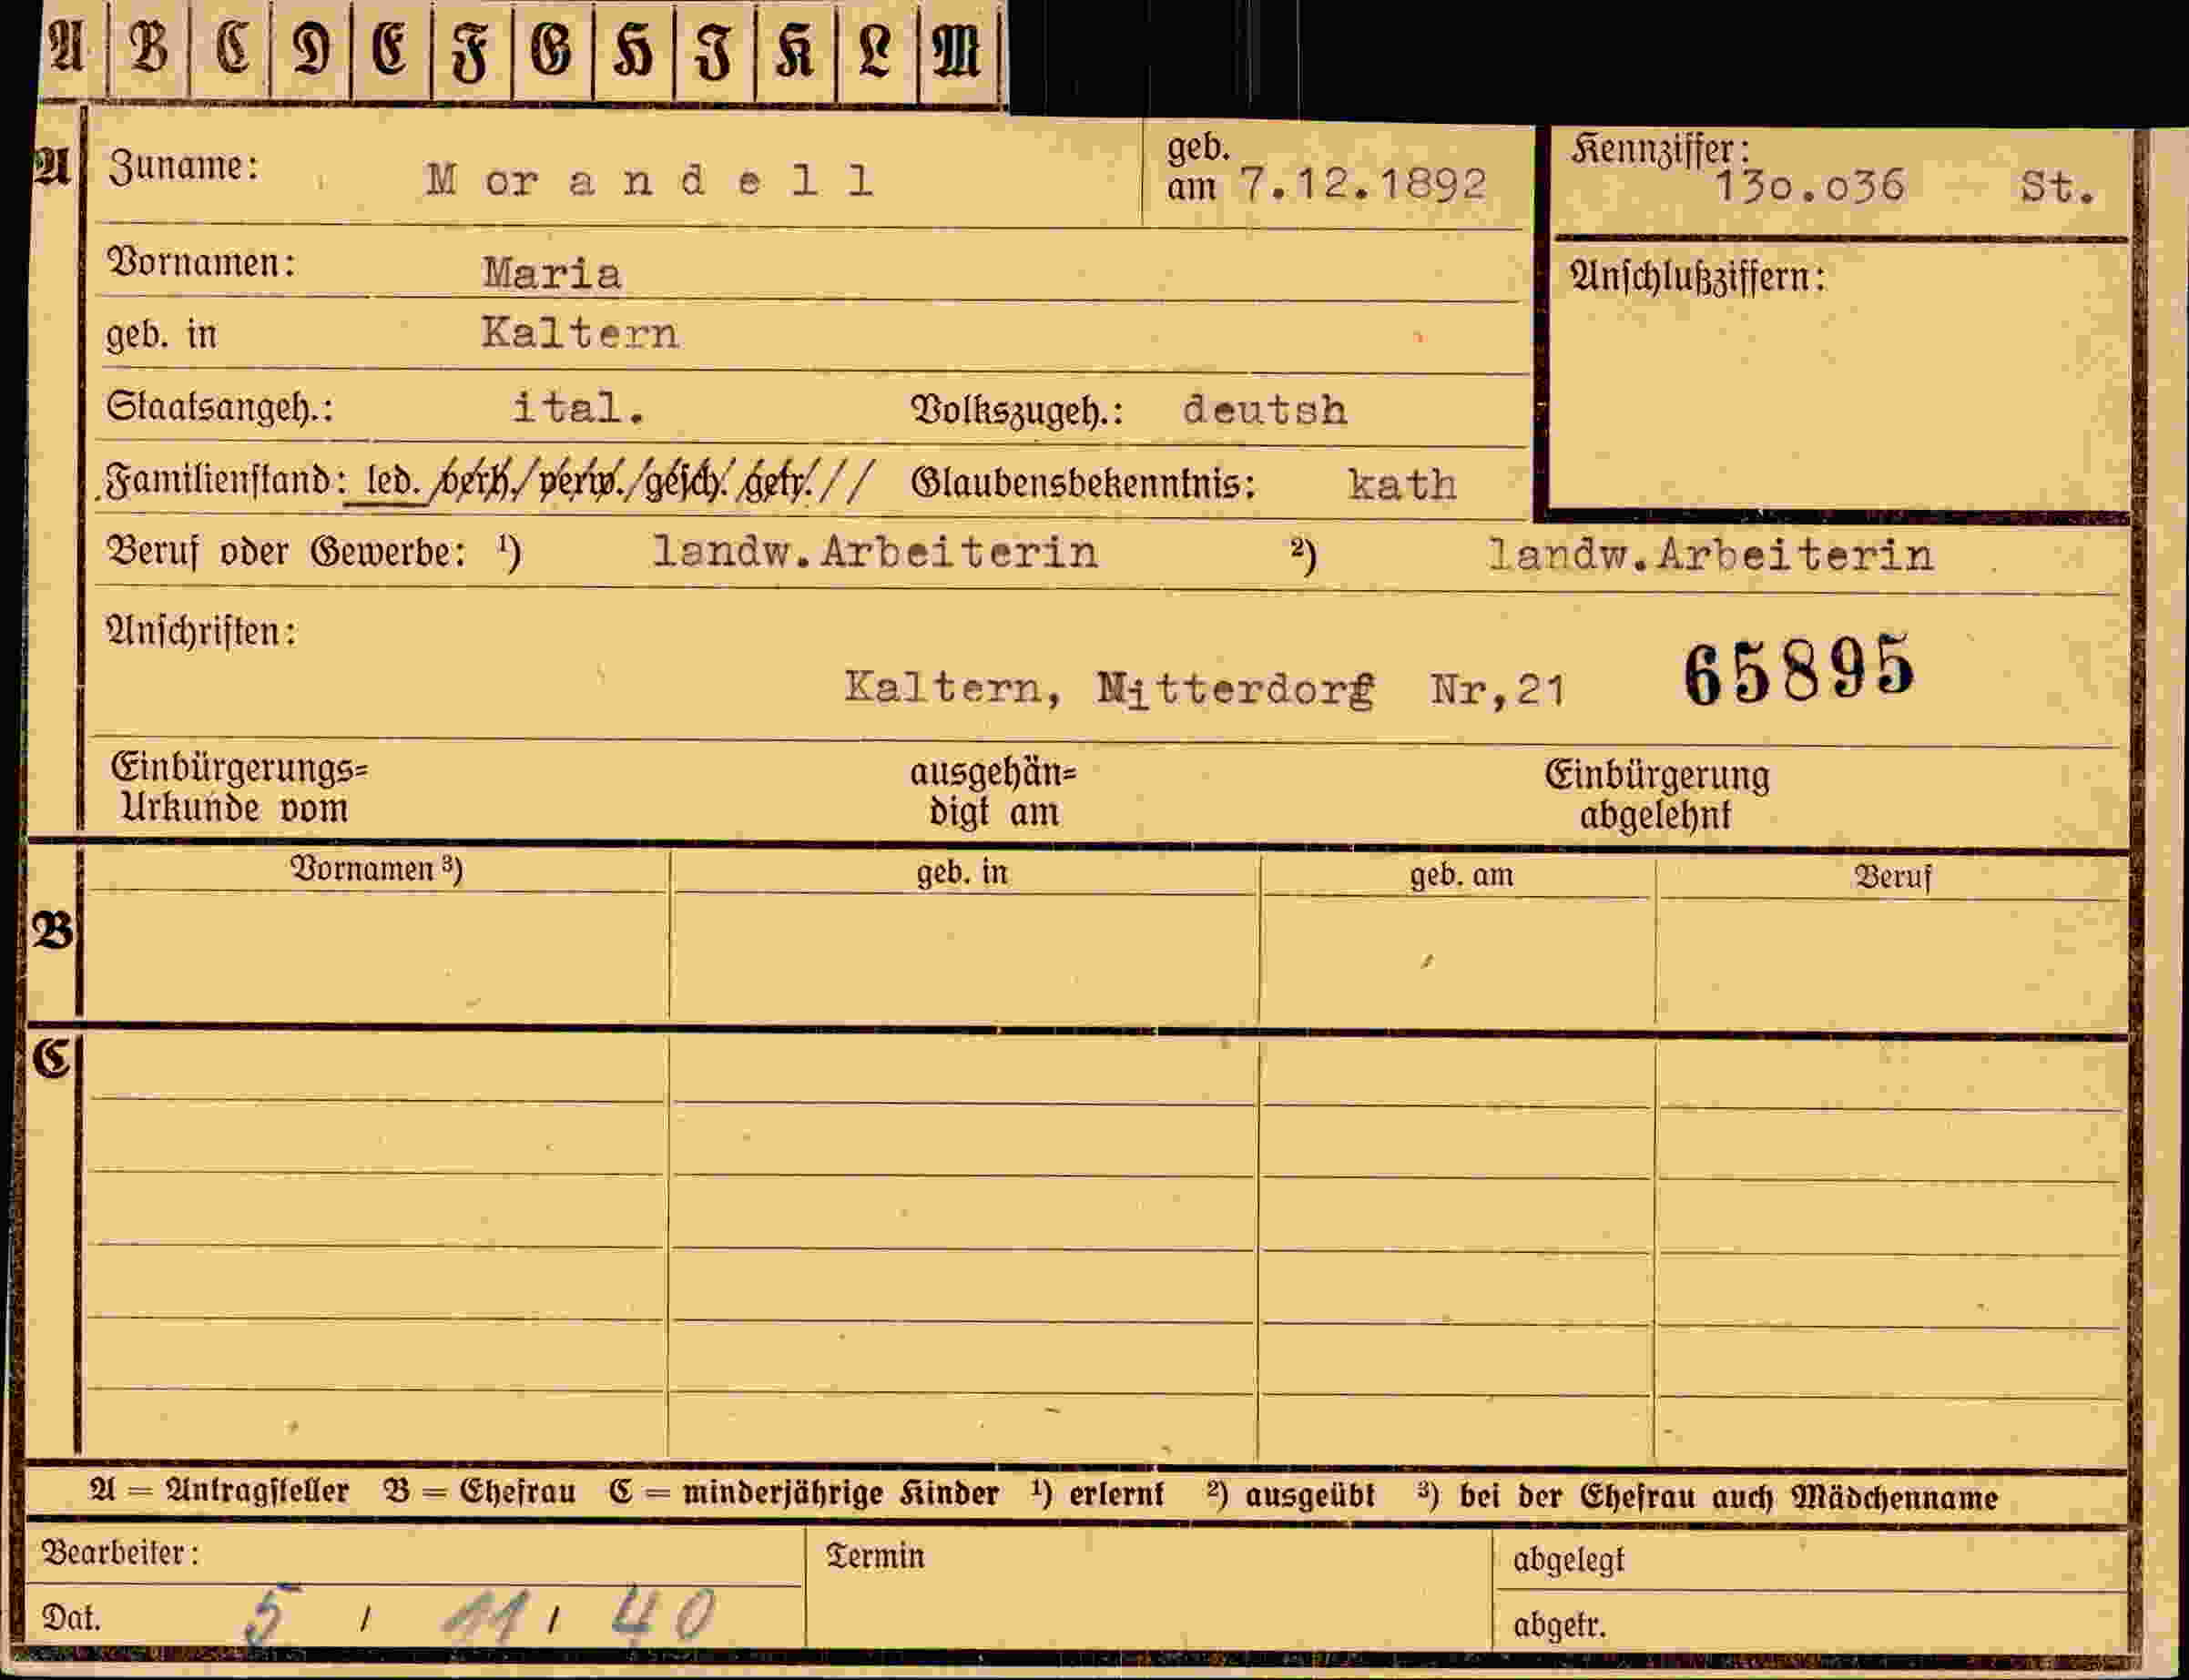 A B C D E F G H I K L M
A Zuname: M or a n d e l l geb. am 7.12.1892 Kennziffer: 130.036 St.
Vornamen: Maria Anschlußziffern:
geb. in Kaltern
Staatsangeh.: ital. Volkszugeh.: deutsh
Familienstand: led. / verh. / verw. / gesch. / getr. / / Glaubensbekenntnis: kath
Beruf oder Gewerbe: ¹) landw.Arbeiterin ²) landw.Arbeiterin
Anschriften:
Kaltern, Mitterdorf Nr,21 65895
Einbürgerungs= ausgehän= Einbürgerung
Urkunde vom digt am abgelehnt
Vornamen ³) geb. in geb. am Beruf
B
C
A = Antragsteller B = Ehefrau C = minderjährige Kinder ¹) erlernt ²) ausgeübt ³) bei der Ehefrau auch Mädchenname
Bearbeiter: Termin abgelegt
Dat. 5 / 11 / 40 abgetr.